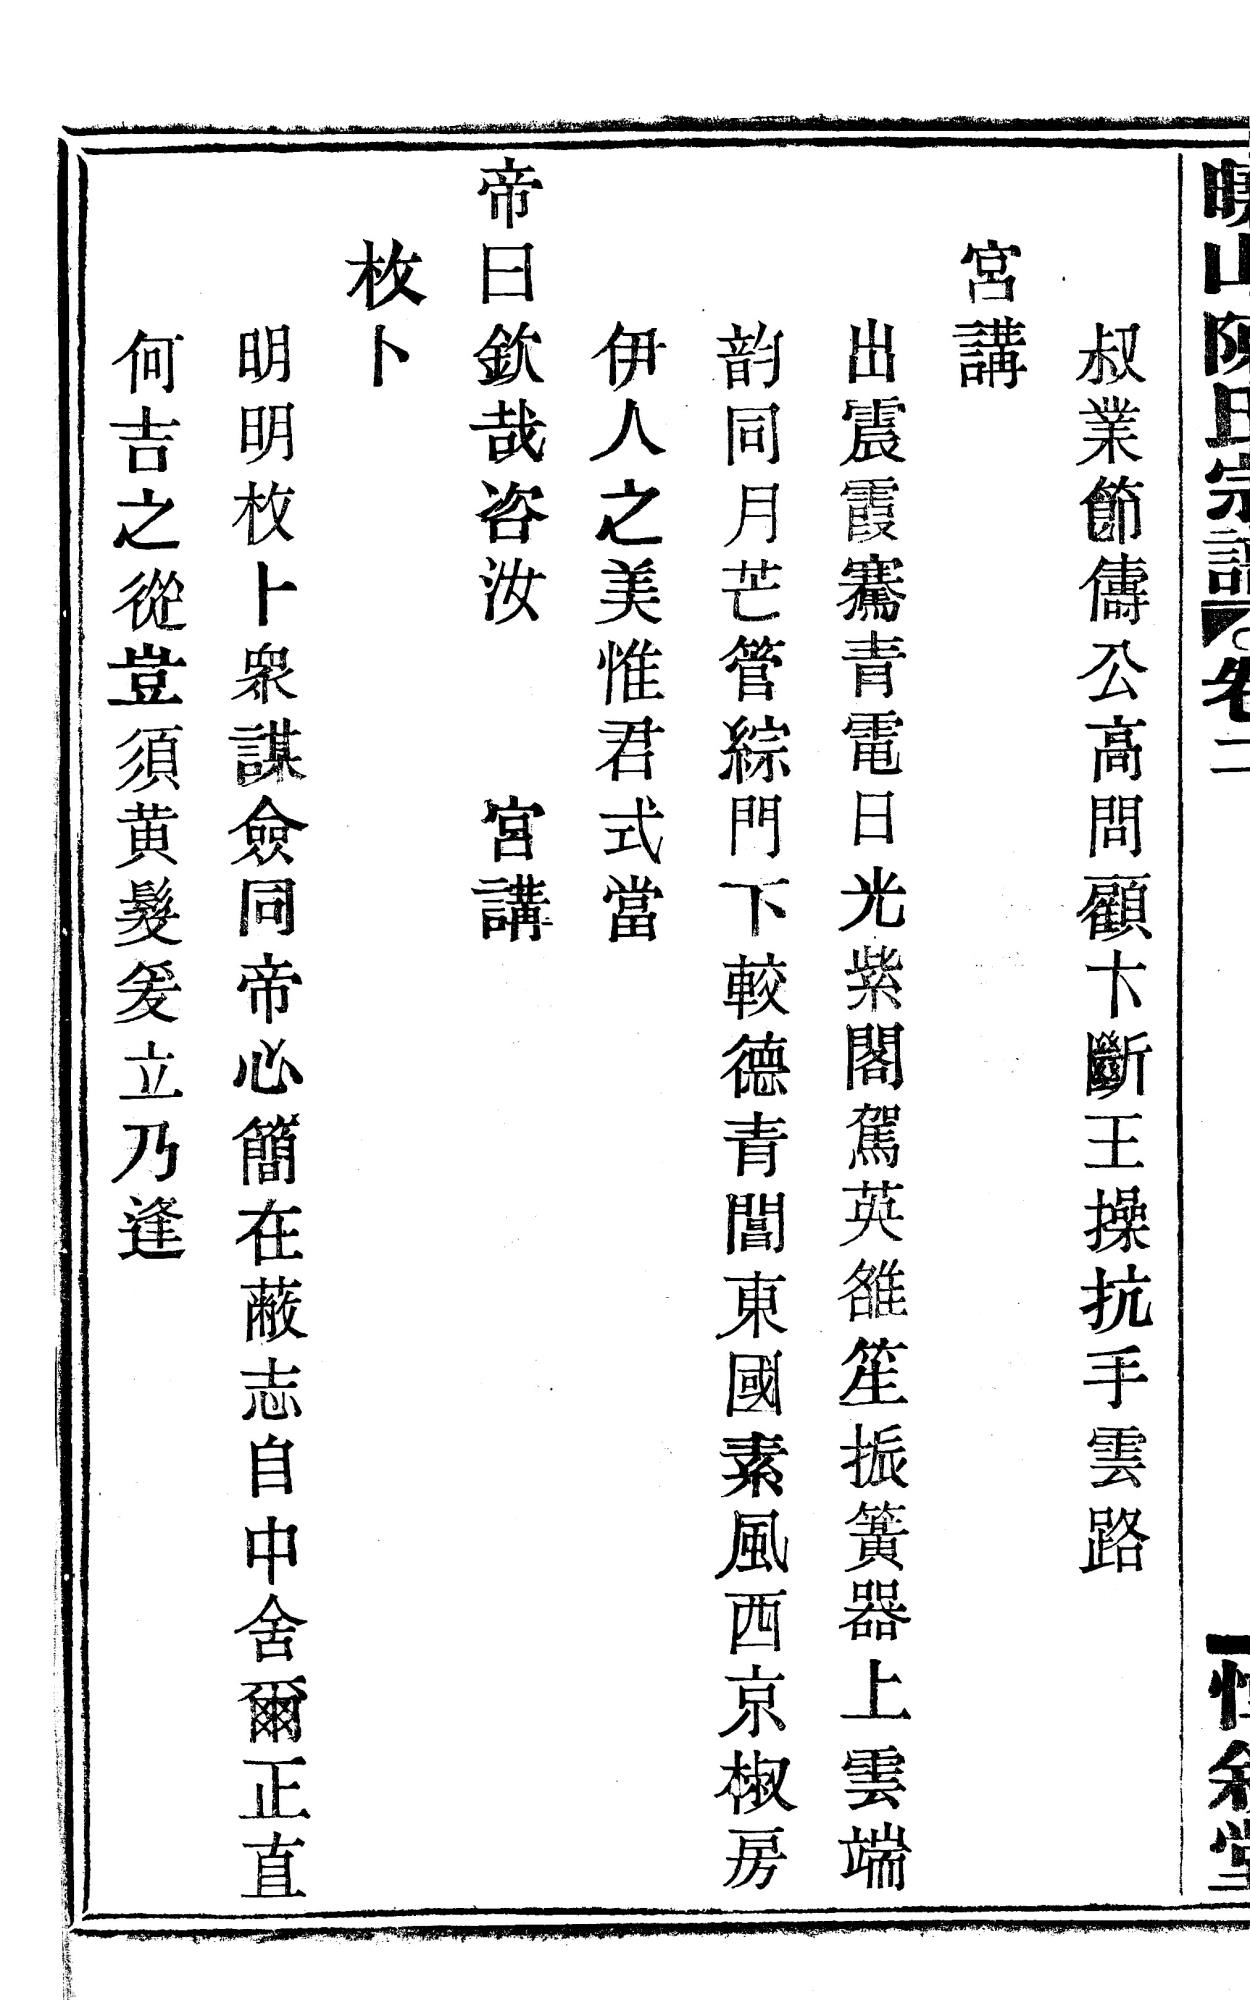 曉山陳氏宗譜 卷二 惇敘堂
叔業節儔公高問顧卞斷王操抗手雲路
宮講
出震霞騫青電日光紫閣駕英雒笙振簧器上雲端
韵同月芒管綜門下較德青閶東國素風西京椒房
伊人之美惟君式當
帝曰欽哉咨汝 宮講
枚卜
明明枚卜衆謀僉同帝必簡在蔽志自中舍爾正直
何吉之從豈須黄髮爰立乃逢